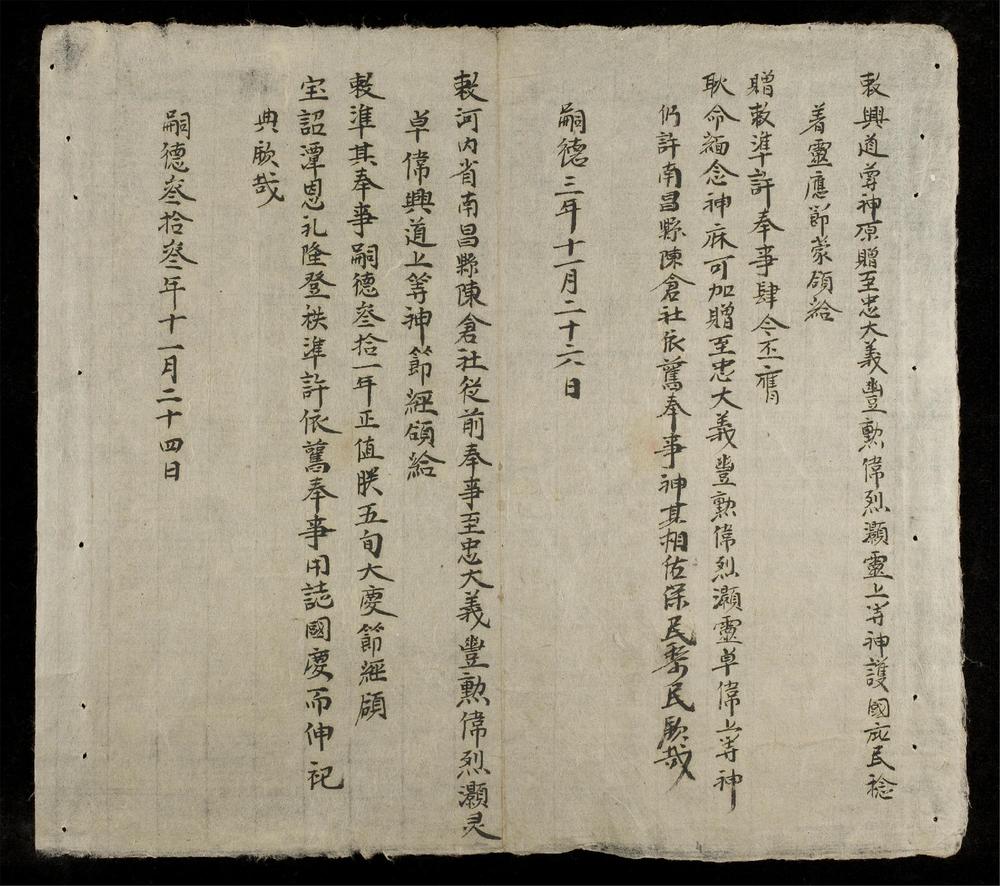 敕興道尊神原贈至忠大義豐勲偉烈灝靈上等神護國庇民稔
着靈應節蒙頒給
贈敕準許奉事肆今丕膺
耿命緬念神庥可加贈至忠大義豊勲偉烈灝靈卓偉上等神
仍許南昌縣陳倉社依舊奉事神其相佑保民黎民欽哉
嗣德三年十一月二十六日
敕河内省南昌縣陳倉社從前奉事至忠大義豐勲偉烈灝灵
卓偉興道上等神節經頒給
敕準其奉事嗣德叁拾一年正值朕五旬大慶節經頒
宝詔潭恩礼隆登秩準許依舊奉事用誌國慶而伸祀
典欽哉
嗣德叁拾叁年十一月二十四日